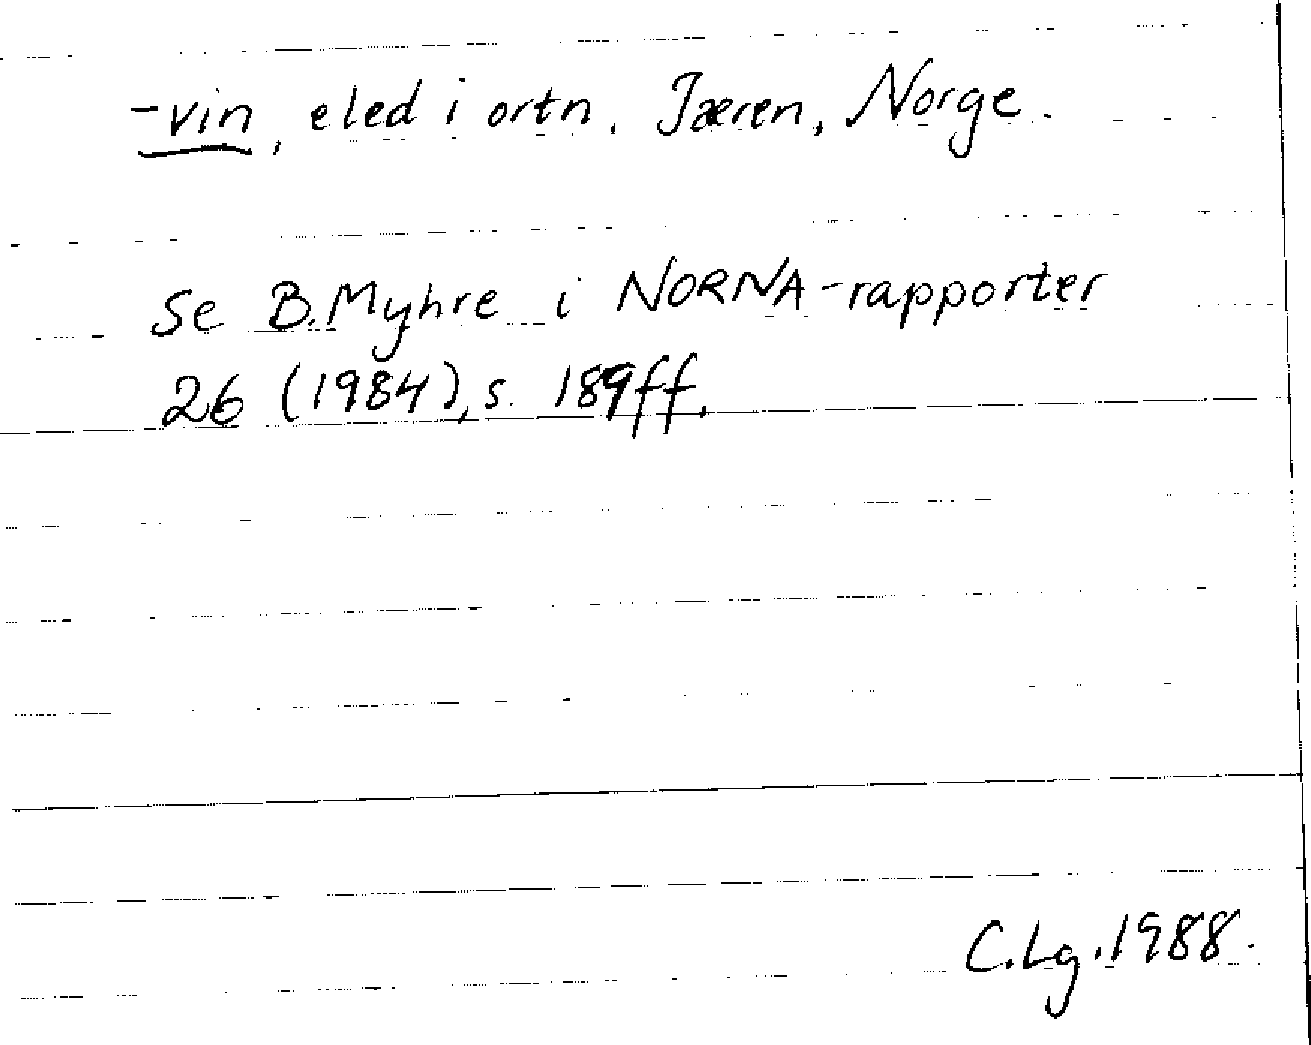 -vin, eled i ortn. Jæren, Norge.
Se B. Myhre i NORNA-rapporter
26 (1984), s. 189ff.
C.Lg. 1988.